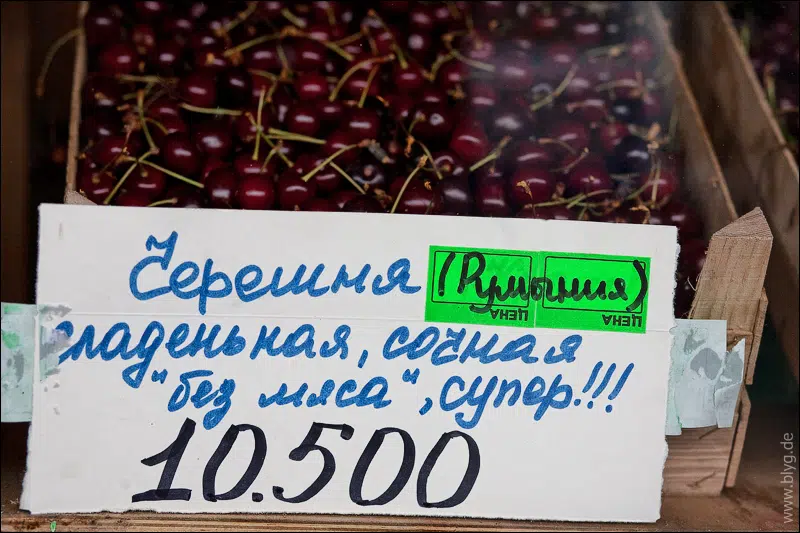 Черешня (Румыния)
ЦЕНА ЦЕНА
сладенькая, сочная
"без мяса", супер!!!
10.500
www.blyg.de